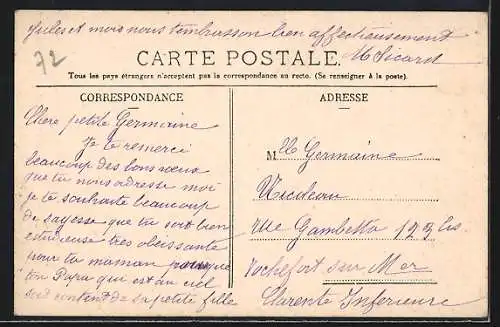 Jules et moi nous t'embrasson bien affectieusement
M Sicard
72
CARTE POSTALE
Tous les pays étrangers n'acceptent pas la correspondance au recto. (Se renseigner à la poste).
CORRESPONDANCE
Chere petite Germaine
je te remerci
beaucoup des bons voeux
que tu nous adresse moi
je te souhaite beaucoup
de sagesse que tu sois bien
estudieuse tres obeissante
pour ta maman pour que
ton Papa qui est au ciel
soit content de sa petite fille
ADRESSE
Mlle Germaine
rue Gambetta 123 bis
Rochefort sur Mer
Charente Inferieure